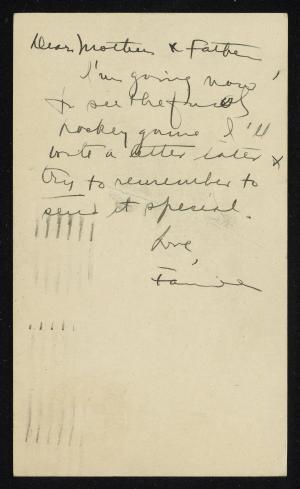 Dear Mother & Father
I'm going now
to see the
hockey game I'll
write a letter later &
try to remember to
send it special.
Love,